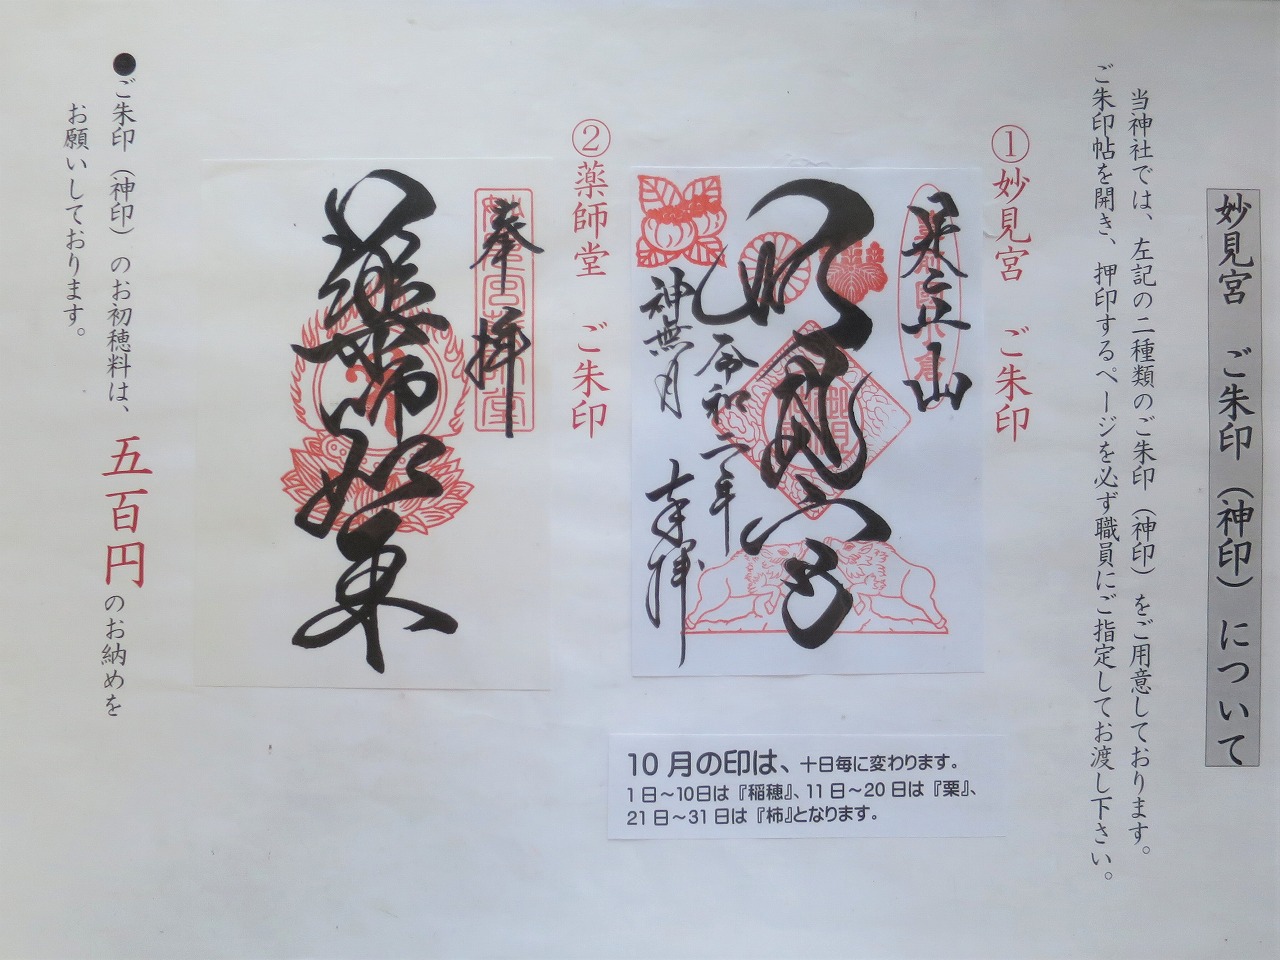 妙見宮 ご朱印（神印）について
当神社では、左記の二種類のご朱印（神印）をご用意しております。
ご朱印帖を開き、押印するページを必ず職員にご指定してお渡し下さい。
①妙見宮 ご朱印
足立山
妙見宮
令和二年
神無月
奉拝
10月の印は、十日毎に変わります。
1日～10日は『稲穂』、11日～20日は『栗』、
21日～31日は『柿』となります。
②薬師堂 ご朱印
奉拝
薬師如来
●ご朱印（神印）のお初穂料は、五百円のお納めを
お願いしております。